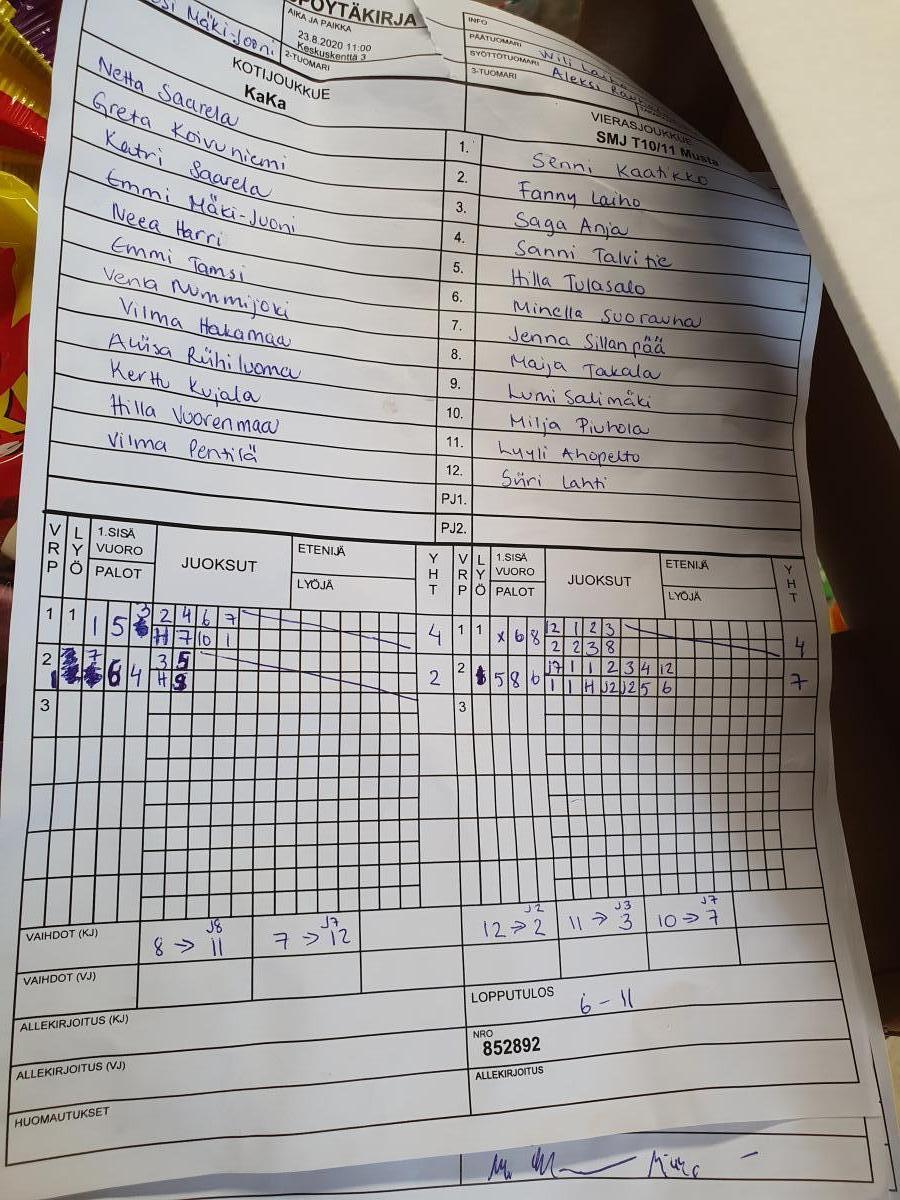 PÖYTÄKIRJA
AIKA JA PAIKKA
23.8.2020 11:00
Keskuskenttä 3
Mäki-Jooni
2-TUOMARI
INFO
PÄÄTUOMARI
SYÖTTÖTUOMARI Wili
3-TUOMARI Aleksi
KOTIJOUKKUE
KaKa
VIERASJOUKKUE
SMJ T10/11 Musta
Netta Saarela 1. Senni Kaatikko
Greta Koivuniemi 2. Fanny Laiho
Katri Saarela 3. Saga Anja
Emmi Mäki-Juoni 4. Sanni Talvitie
Neea Harri 5. Hilla Tulasalo
Emmi Tamsi 6. Minella Suorauha
Venla Nummijoki 7. Jenna Sillanpää
Vilma Hakamaa 8. Maija Takala
Aliisa Riihiluoma 9. Lumi Salimäki
Kerttu Kujala 10. Milja Piuhola
Hilla Vuorenmaa 11. Lyyli Ahopelto
Vilma Pentilä 12. Siiri Lahti
PJ1.
PJ2.
VRP LYÖ 1.SISÄ VUORO PALOT JUOKSUT ETENIJÄ LYÖJÄ YHT VRP LYÖ 1.SISÄ VUORO PALOT JUOKSUT ETENIJÄ LYÖJÄ YHT
1 1 1 5 3 2 4 6 7 4 1 1 x 6 8 12 1 2 3 4
H 7 10 1 2 2 3 8
2 7 6 4 3 5 2 2 5 8 6 J7 1 1 2 3 4 12 7
H 9 1 1 H J2 J2 5 6
3 3
VAIHDOT (KJ) 8 → 11 J8 7 → 12 J7 12 → 2 J2 11 → 3 J3 10 → 7 J7
VAIHDOT (VJ)
LOPPUTULOS 6 - 11
ALLEKIRJOITUS (KJ)
NRO
852892
ALLEKIRJOITUS (VJ)
ALLEKIRJOITUS
HUOMAUTUKSET